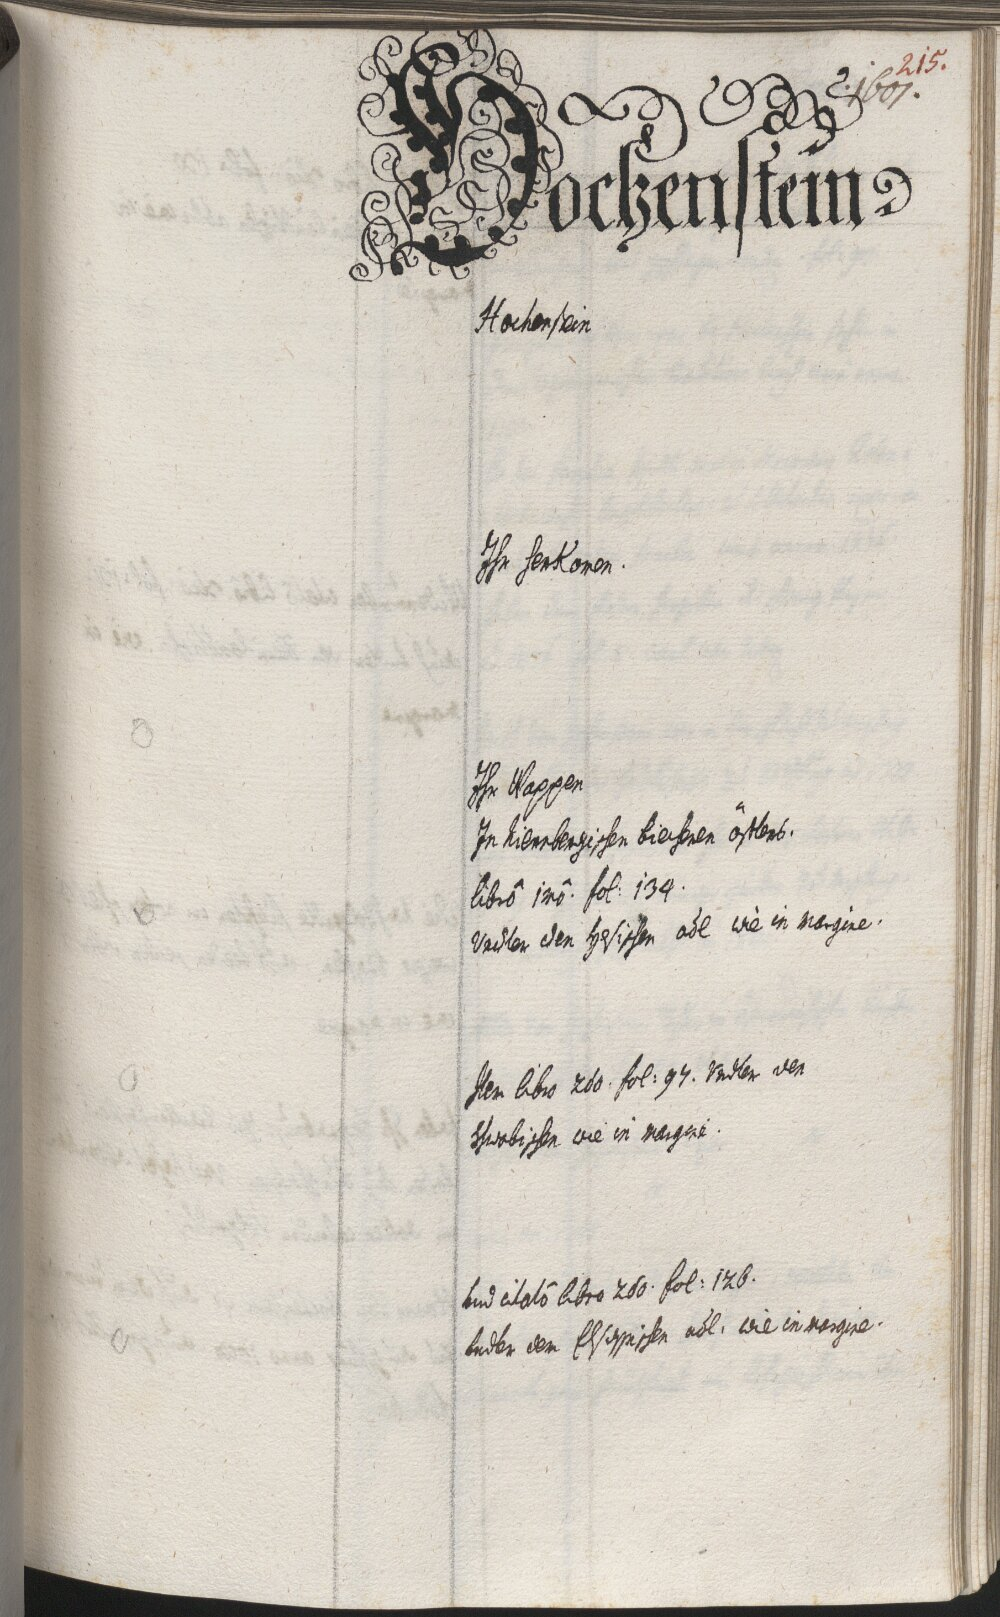 215.
1601.
Hochenstein
Hochenstein
Ihr herKomen.
Ihr Wappen
In Niernbergischen biechern öffters.
librô imô. fol: 134.
Undter den Heßischen adl wie in margine.
Item libro 2do. fol: 97. Undter den
Schwabischen wie in margine.
und citatô libro 2do. fol: 126.
under dem Elsassischen adl. wie in margine.